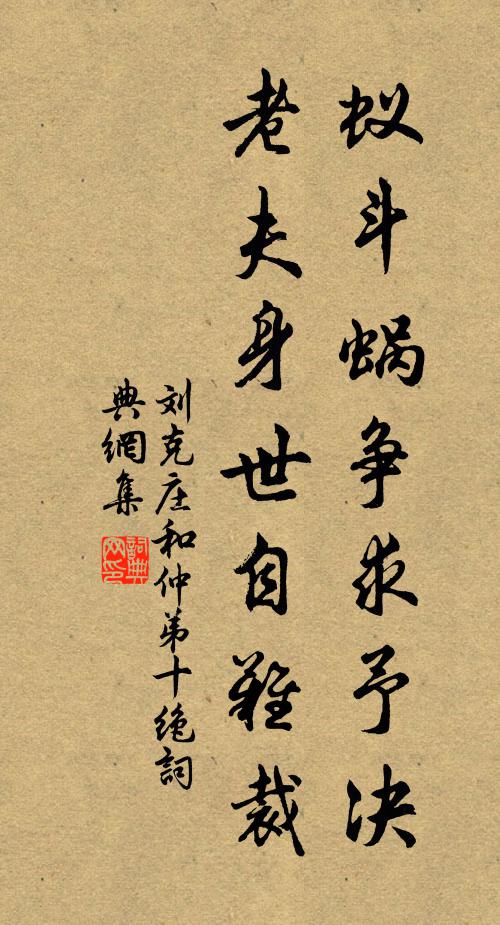 蚁斗蜗争求予决
老夫身世自难裁
刘克庄和仲弟十绝詞
典網集
詞典
网印